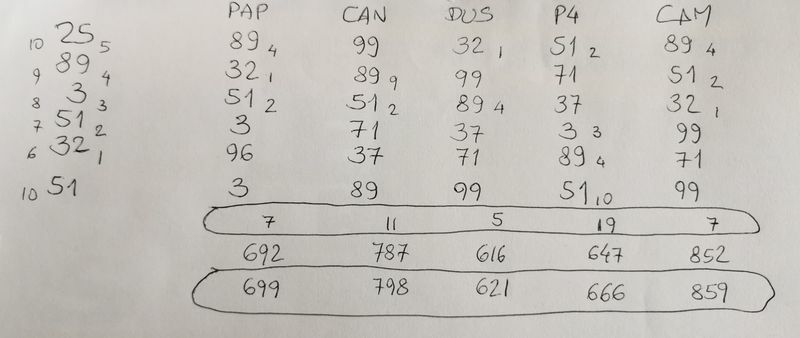 PAP CAN DUS P4 CAM
10 25 5 89 4 99 32 1 51 2 89 4
9 89 4 32 1 89 9 99 71 51 2
8 3 3 51 2 51 2 89 4 37 32 1
7 51 2 3 71 37 3 3 99
6 32 1 96 37 71 89 4 71
10 51 3 89 99 51 10 99
7 11 5 19 7
692 787 616 647 852
699 798 621 666 859